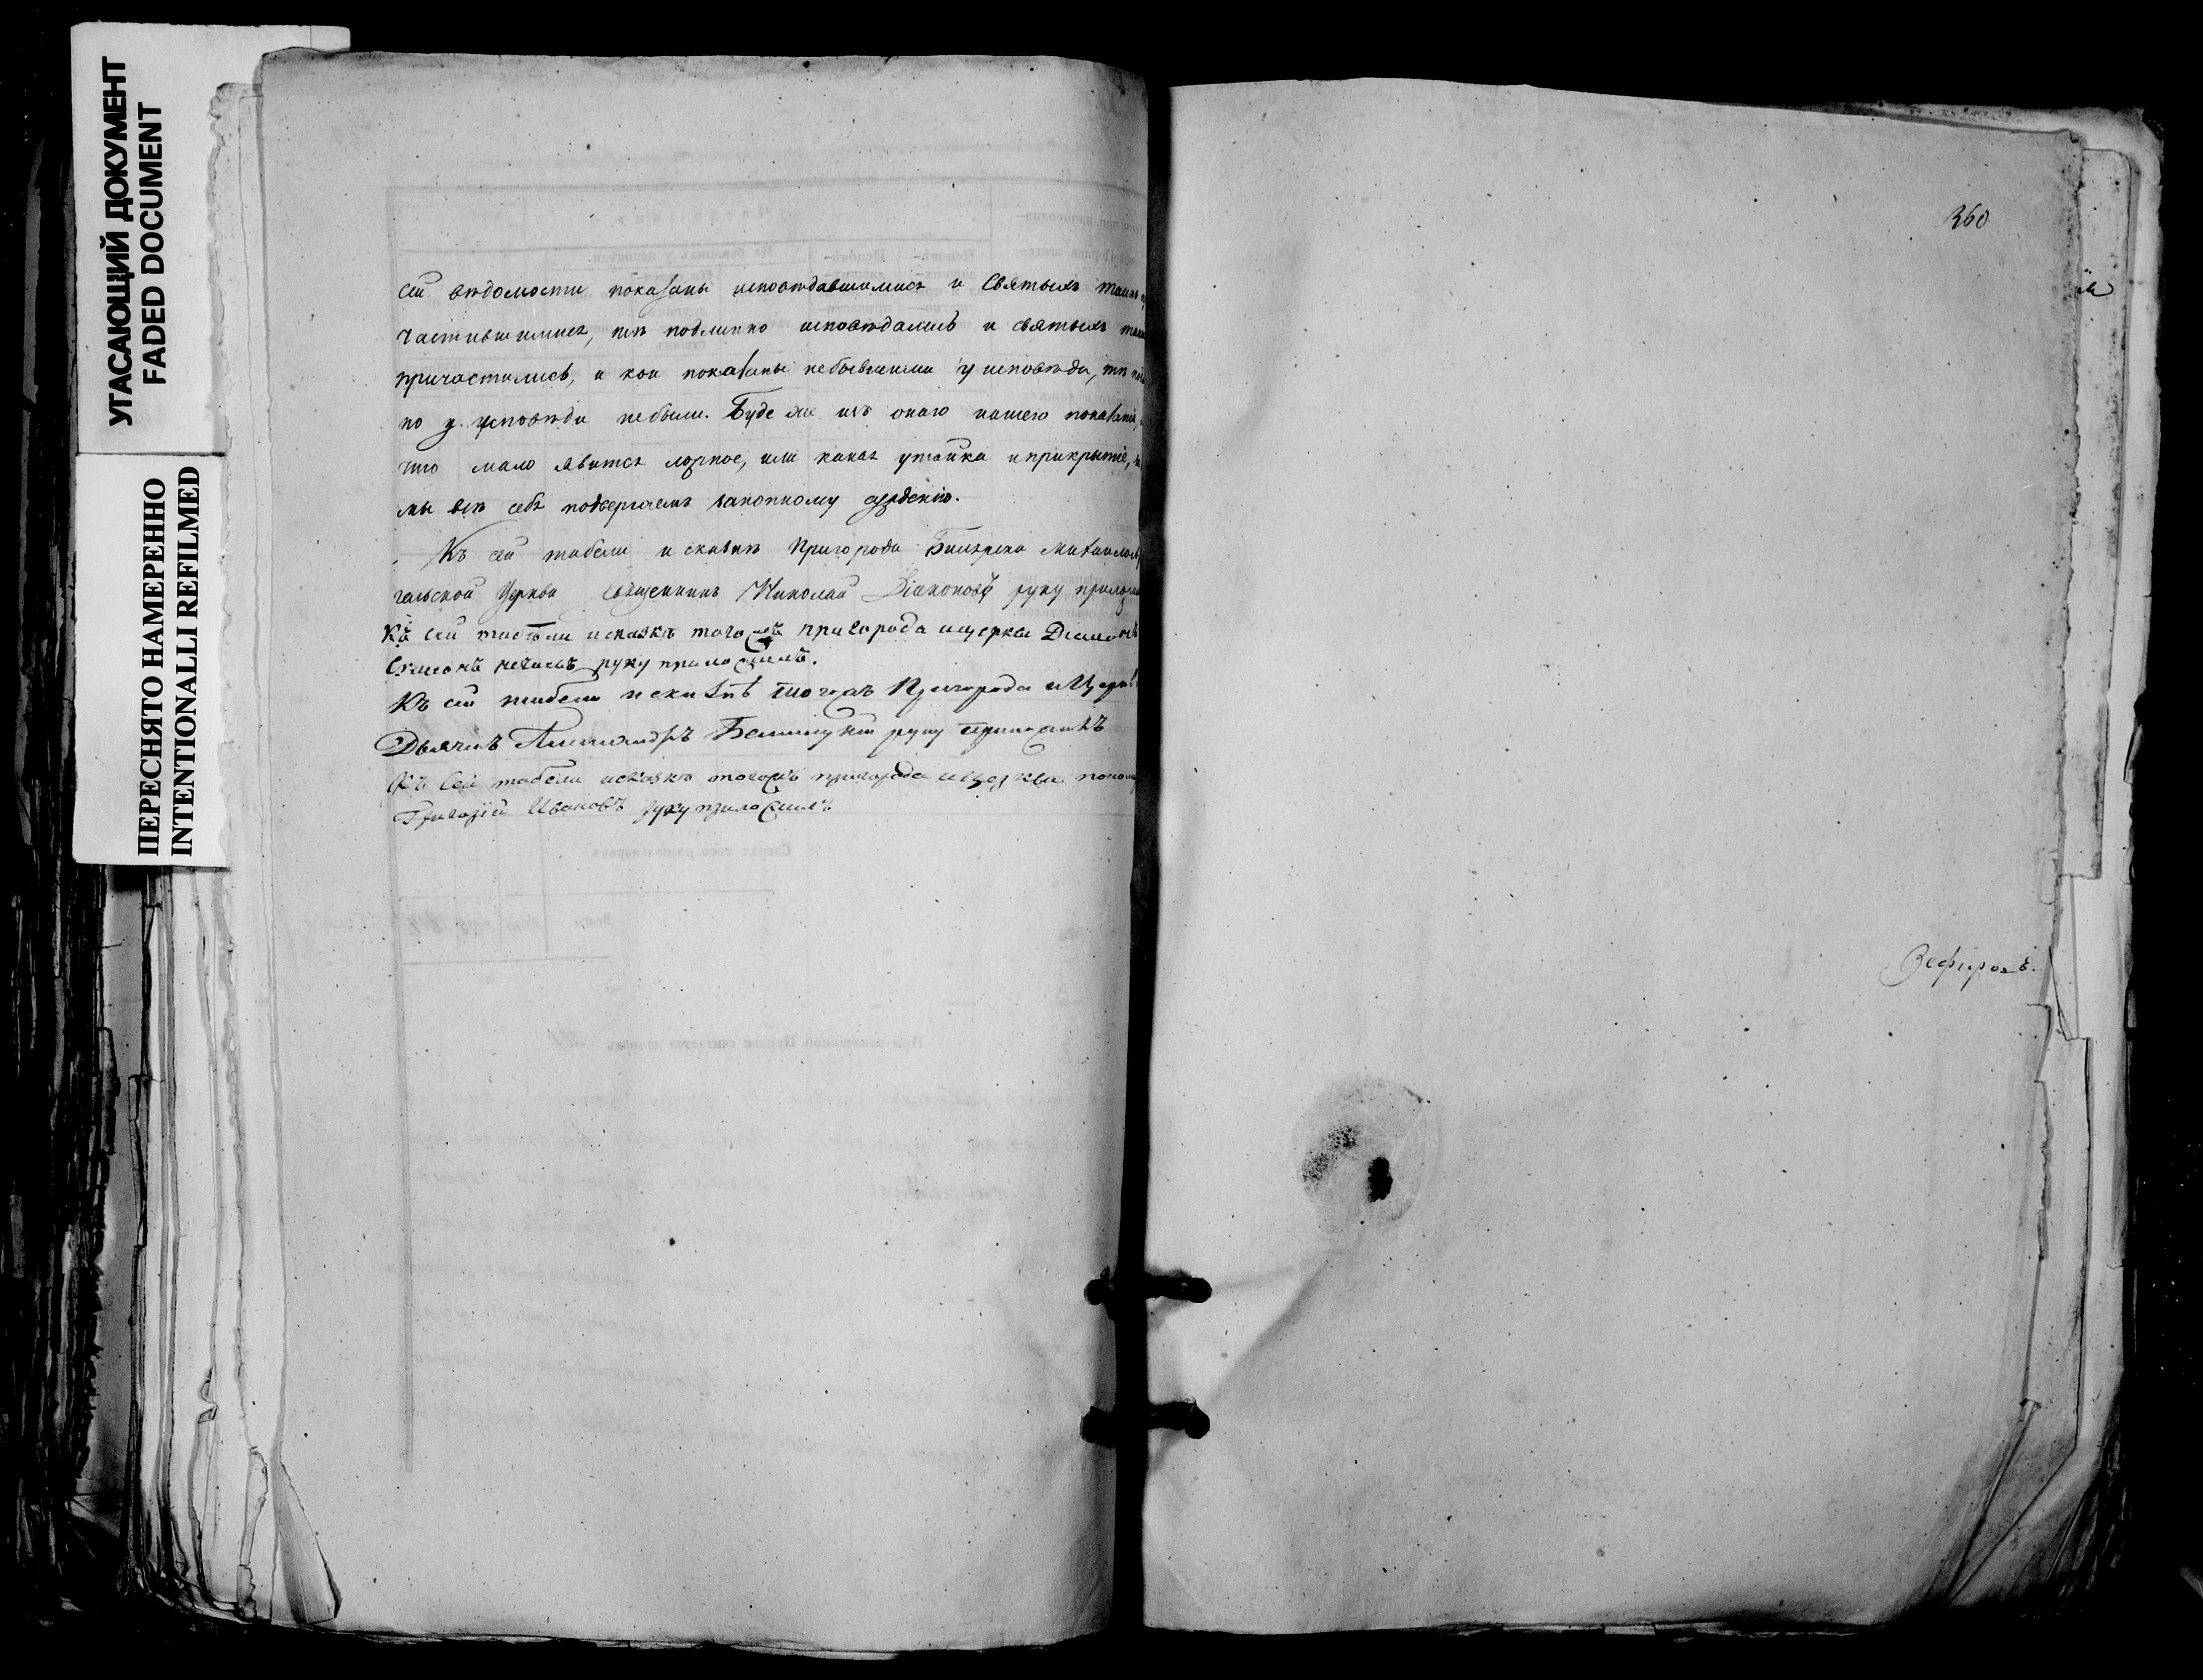 УГАСАЮЩИЙ ДОКУМЕНТ
FADED DOCUMENT
ПЕРЕСНЯТО НАМЕРЕННО
INTENTIONALLI REFILMED
360
сей вѣдомости показаны исповѣдавшимися и Святыхъ таинъ
частившимися, тѣ подлинно исповѣдались и святыхъ
причастились, и кои показаны небывшими у исповѣди, тѣ
но у исповѣди небыли. Буде же изъ онаго нашего показанія,
что мало явится ложное, или какая утайка и прикрытіе,
мы всѣ себя подвергаемъ законному сужденію.
Къ сей табели и сказкѣ Пригорода Билярска
гельской Церкви Священникъ Николай Діаконовъ руку
Къ сей табели исказкѣ тогожъ пригорода ицеркви
руку приложилъ.
Къ сей табели и сказкѣ тогожъ Пригорода и Церкви
Дьячекъ руку приложилъ
Къ Сей табели исказкѣ тогожъ пригорода ицеркви
Григорій Ивановъ руку приложилъ
Зефировъ.